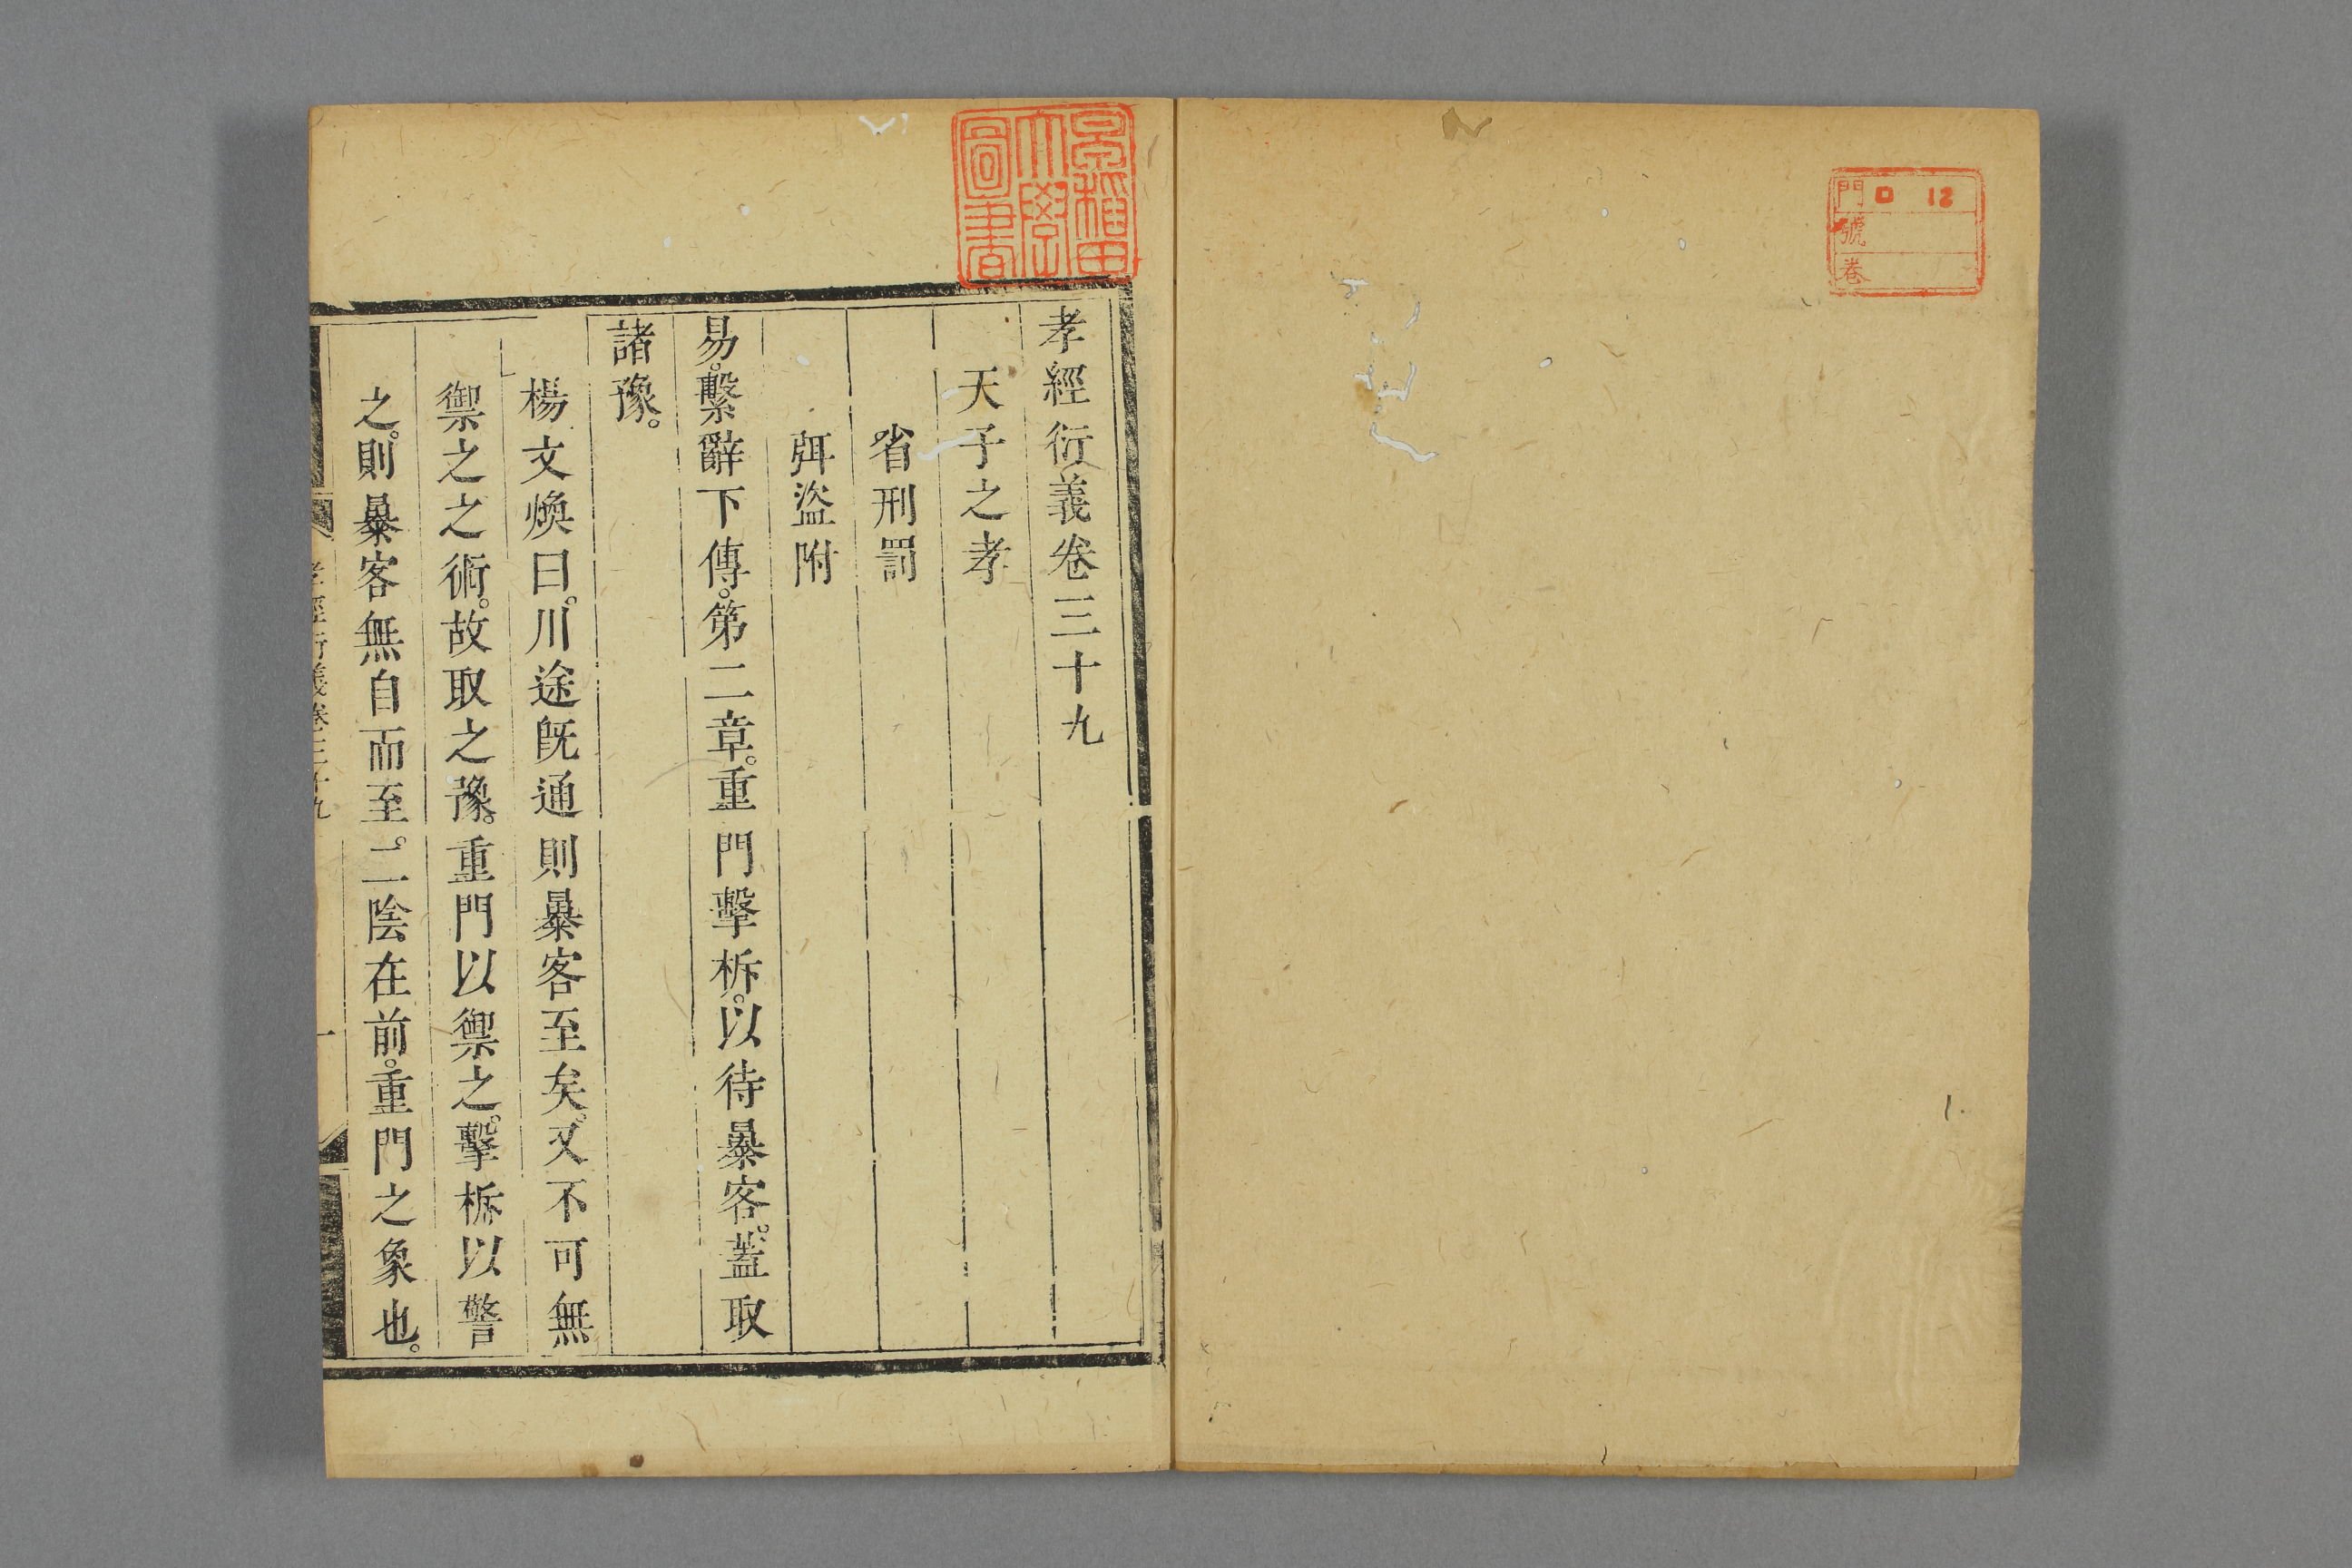 門 ロ 12
號
卷
早稻田
大學
圖書
孝經衍義卷三十九
天子之孝
省刑罰
弭盜附
易。繫辭下傳。第二章。重門擊柝。以待暴客。蓋取
諸豫。
楊文煥曰。川途旣通則暴客至矣。又不可無
禦之之術。故取之豫。重門以禦之。擊柝以警
之。則暴客無自而至。二陰在前。重門之象也。
孝經衍義卷三十九 一